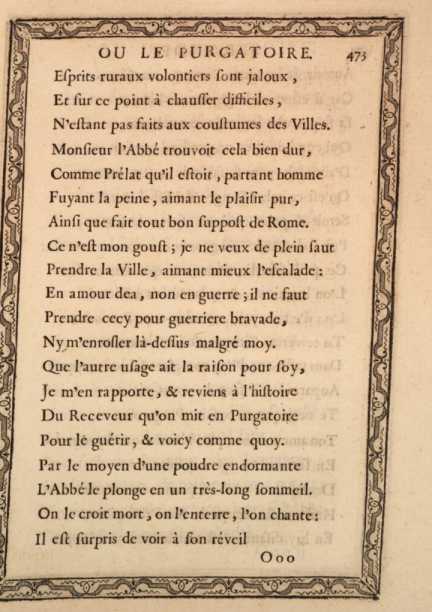 OU LE PURGATOIRE. 473
Eſprits ruraux volontiers ſont jaloux,
Et ſur ce point à chauſſer difficiles,
N'eſtant pas faits aux couſtumes des Villes.
Monſieur l'Abbé trouvoit cela bien dur,
Comme Prélat qu'il eſtoit, partant homme
Fuyant la peine, aimant le plaiſir pur,
Ainſi que fait tout bon ſuppoſt de Rome.
Ce n'eſt mon gouſt; je ne veux de plein ſaut
Prendre la Ville, aimant mieux l'eſcalade:
En amour dea, non en guerre; il ne faut
Prendre cecy pour guerriere bravade,
Ny m'enroſler là-deſſus malgré moy.
Que l'autre uſage ait la raiſon pour ſoy,
Je m'en rapporte, & reviens à l'hiſtoire
Du Receveur qu'on mit en Purgatoire
Pour le guérir, & voicy comme quoy.
Par le moyen d'une poudre endormante
L'Abbé le plonge en un très-long ſommeil.
On le croit mort, on l'enterre, l'on chante:
Il eſt ſurpris de voir à ſon réveil
Ooo